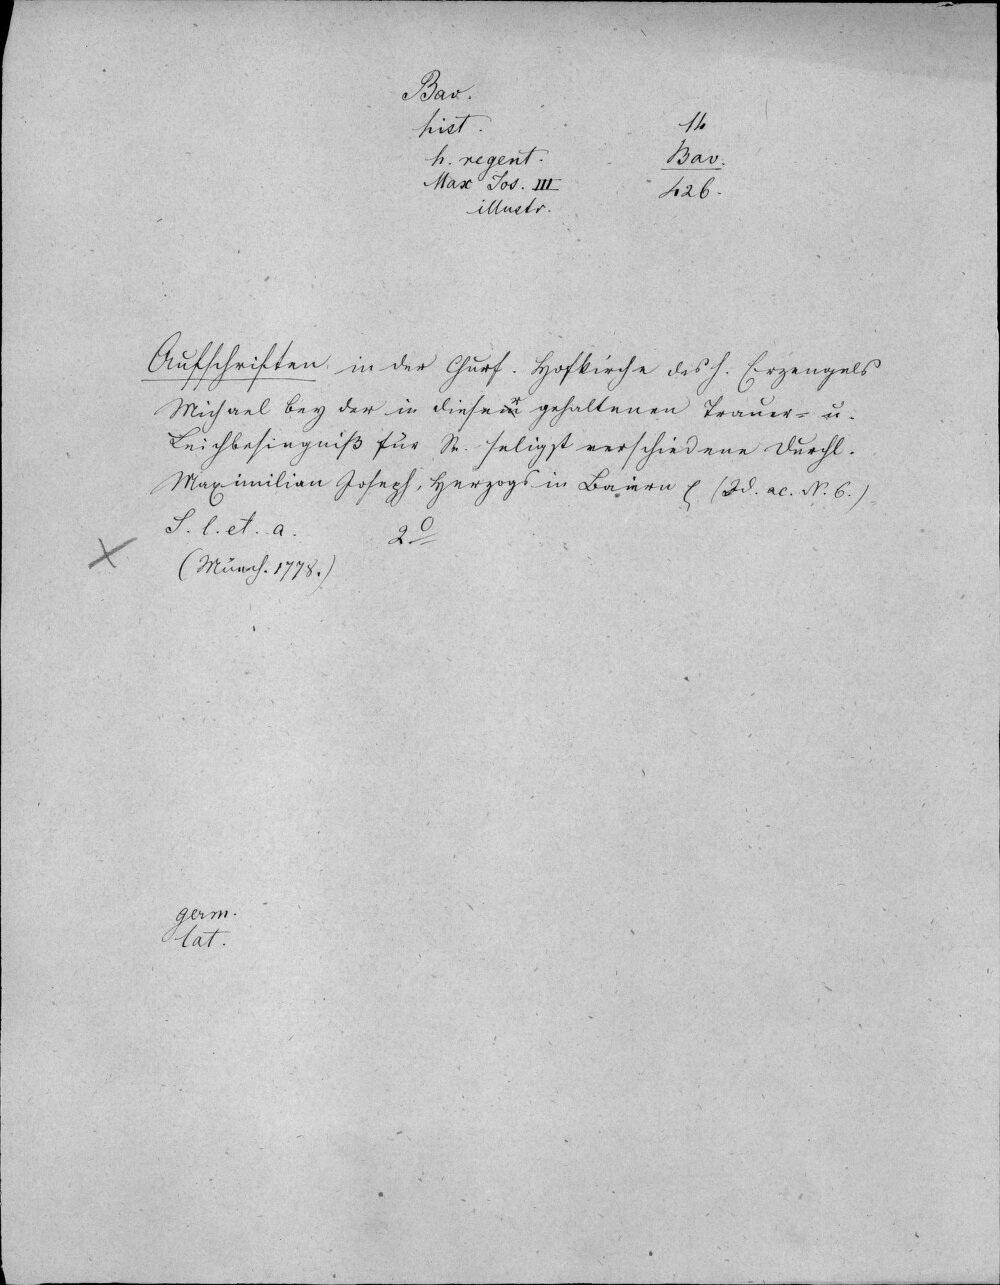 Bav.
hist.
h. regent.
Max Jos. III
illustr.
Bav.
426.
Aufschriften in der Churf. Hofkirche des h. Erzengels
Michael bey der in dieser gehaltenen Trauer- u.
Leichbesingniß für Se. seligst verschiedene Durchl.
Maximilian Joseph, Herzogs in Baiern (Id. ac. N. 6.)
S. l. et. a. 2°
(Münch. 1778.)
germ.
lat.